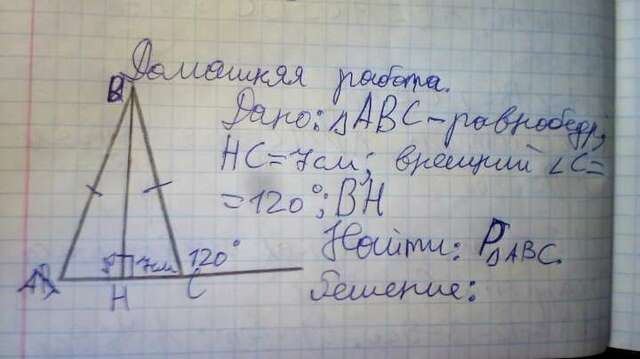 Домашняя работа.
Дано: △ABC-равнобедр;
HC=7см; внешний ∠C=
=120°; BH
Найти: P△ABC.
Решение:
B
7см 120°
A H C